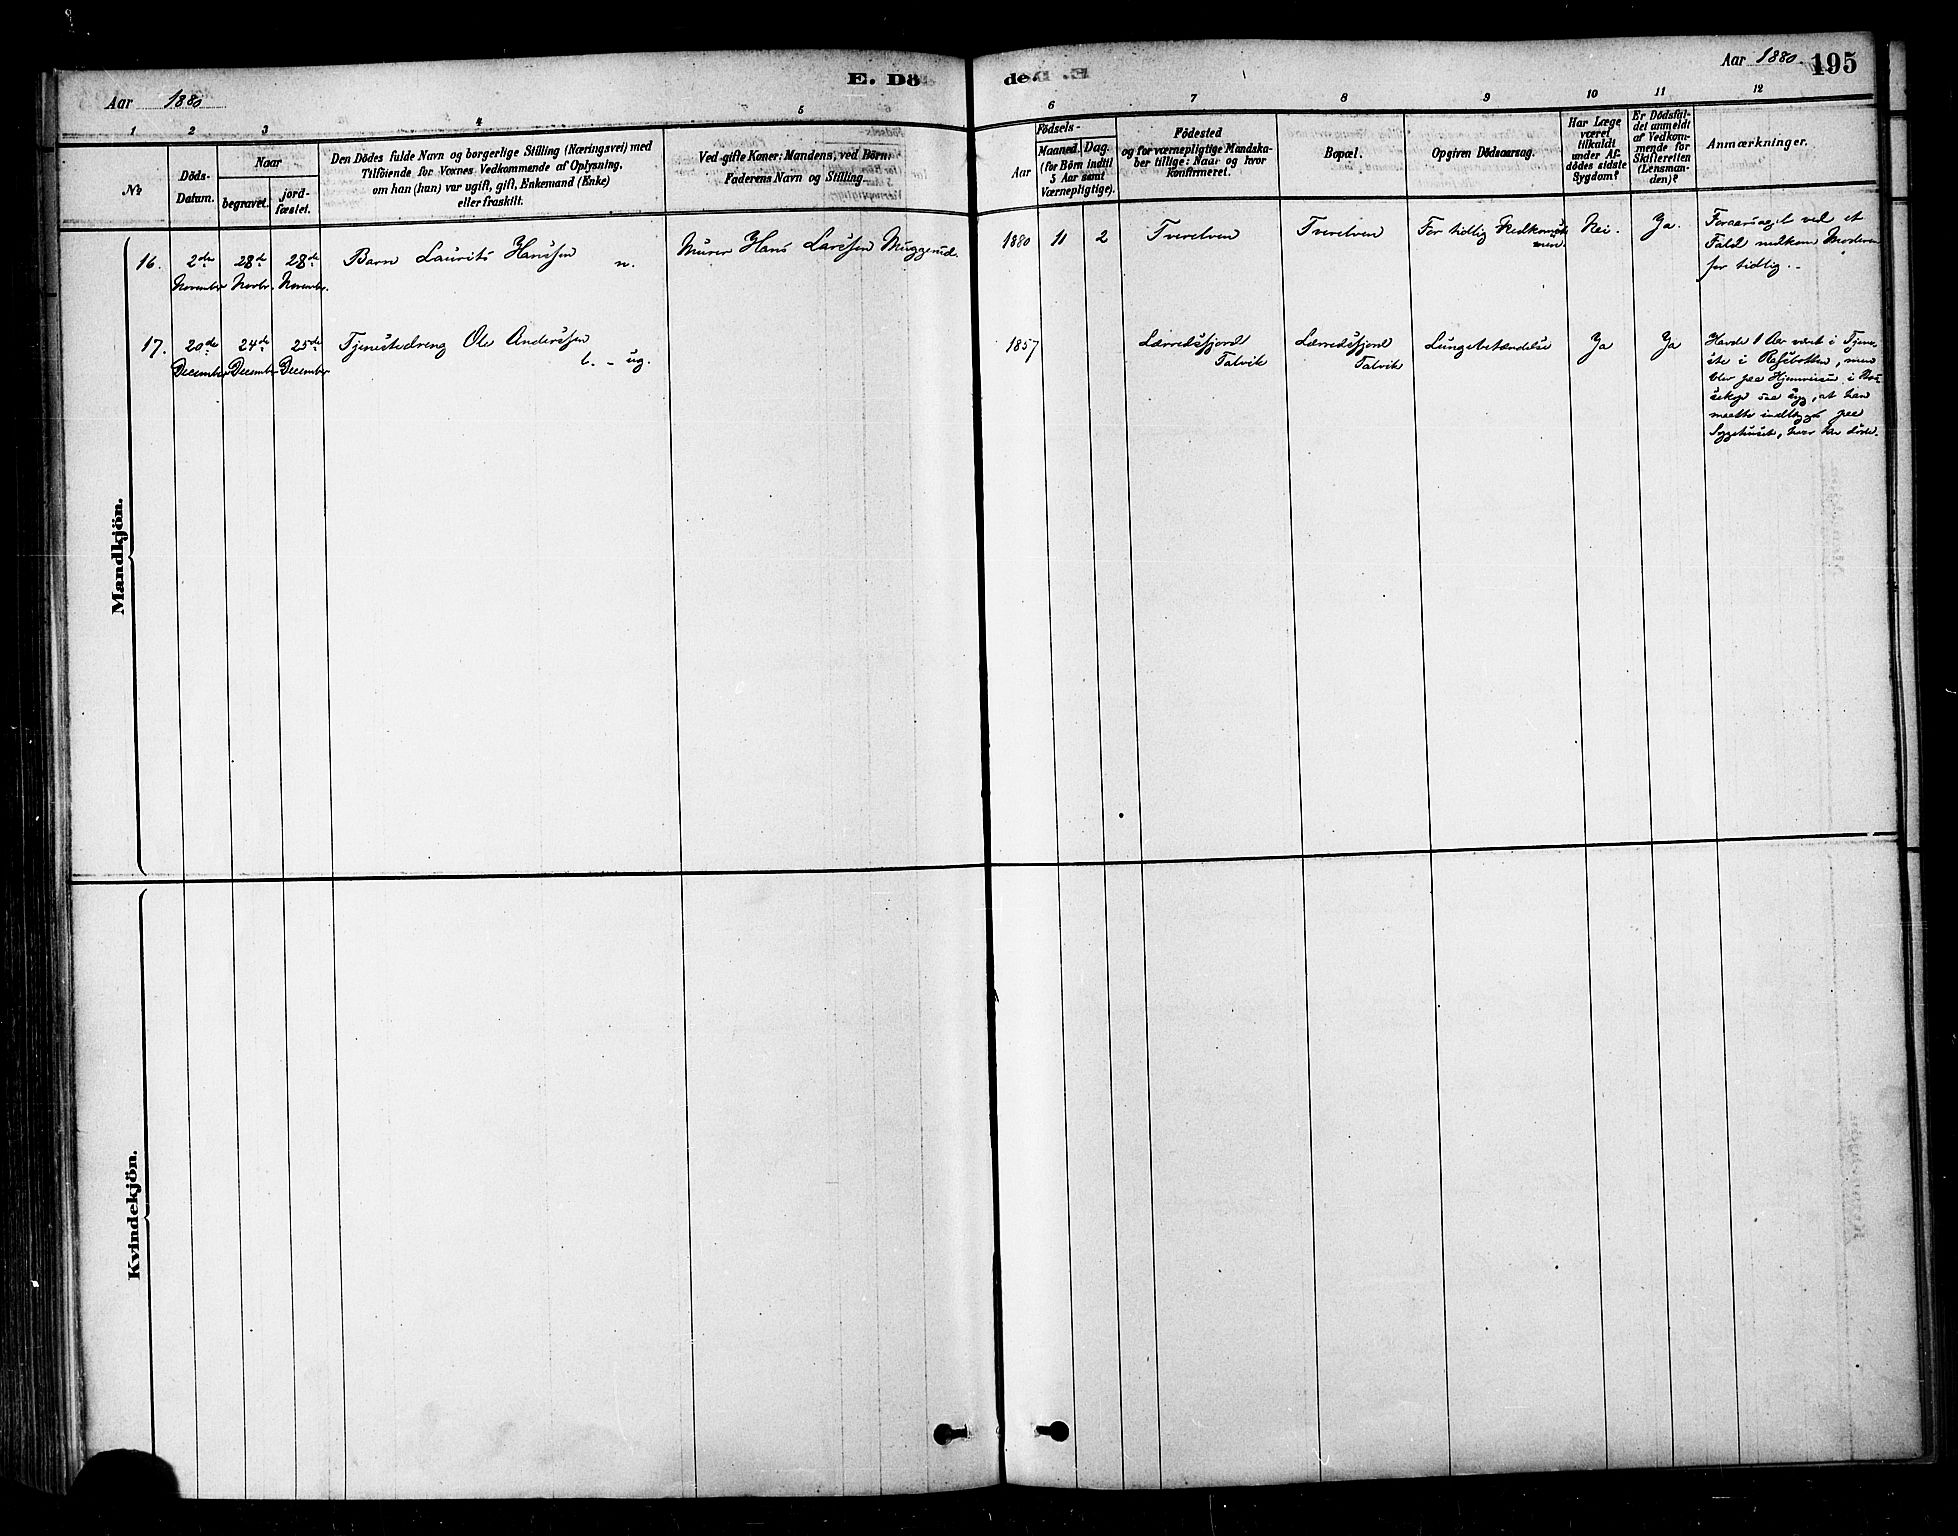 Aar 1880.
E. Döde.
Aar 1880.
195
1
2
3
4
5
6
7
8
9
10
11
12
No
Döds-
Datum.
Naar
begravet.
jord-
fæstet.
Den Dödes fulde Navn og borgerlige Stilling (Næringsvei) med
Tilföiende for Voxnes Vedkommende af Oplysning,
om han (hun) var ugift, gift, Enkemand (Enke)
eller fraskilt.
Ved gifte Koner: Mandens, ved Börn:
Faderens Navn og Stilling.
Födsels-
Aar
Maaned. Dag.
(for Börn indtil
5 Aar samt
Værnepligtige).
Födested
og for værnepligtige Mandska-
ber tillige: Naar og hvor
Konfirmeret.
Bopæl.
Opgiven Dödsaarsag.
Har Læge
været
tilkaldt
under Af-
dödes sidste
Sygdom?
Er Dödsfal-
det anmeldt
af Vedkom-
mende for
Skifteretten
(Lensman-
den)?
Anmærkninger.
Mandkjön.
16.
2de
November
28de
Novbr.
28de
Novembr.
Barn Laurits Hanssen
n.
Murer Hans Larssen Muggerud.
1880
11
2
Tverelven
Tverelven
For tidlig Nedkomst
Nei.
Ja.
Foraarsaget ved et
Fald nedkom Moderen
for tidlig.
17.
20de
December
24de
December
25de
December
Tjenestedreng Ole Anderssen
l. - ug.
1857
Lærredsfjord
Talvik
Lærredsfjord
Talvik
Lungebetændelse
Ja
Ja
Havde 1 Aar været i Tjene-
ste i Rafsbotten, men
blev paa Hjemreisen i Bos-
sekop saa syg, at han
maatte indlægges paa
Sygehuset, hvor han døde.
Kvindekjön.